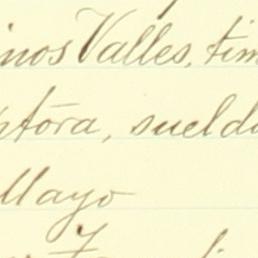 inos Valles, tim
ptora, sueldo
Mayo
y